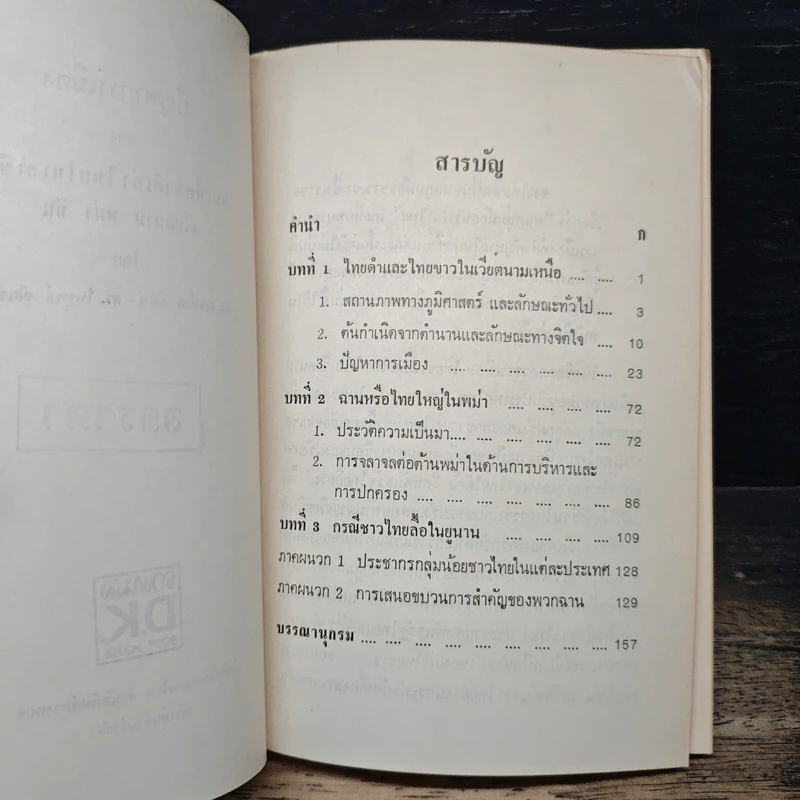 สารบัญ
คำนำ ก
บทที่ 1 ไทยดำและไทยขาวในเวียตนามเหนือ .... .... 1
1. สถานภาพทางภูมิศาสตร์ และลักษณะทั่วไป .... 3
2. ต้นกำเนิดจากตำนานและลักษณะทางจิตใจ .... 10
3. ปัญหาการเมือง .... .... .... .... .... .... 23
บทที่ 2 ฉานหรือไทยใหญ่ในพม่า .... .... .... .... 72
1. ประวัติความเป็นมา.... .... .... .... .... 72
2. การจลาจลต่อต้านพม่าในด้านการบริหารและ
การปกครอง .... .... .... .... .... .... 86
บทที่ 3 กรณีชาวไทยลื้อในยูนาน .... .... .... .... 109
ภาคผนวก 1 ประชากรกลุ่มน้อยชาวไทยในแต่ละประเทศ 128
ภาคผนวก 2 การเสนอขบวนการสำคัญของพวกฉาน 129
บรรณานุกรม .... .... .... .... .... .... .... .... 157
D.K.